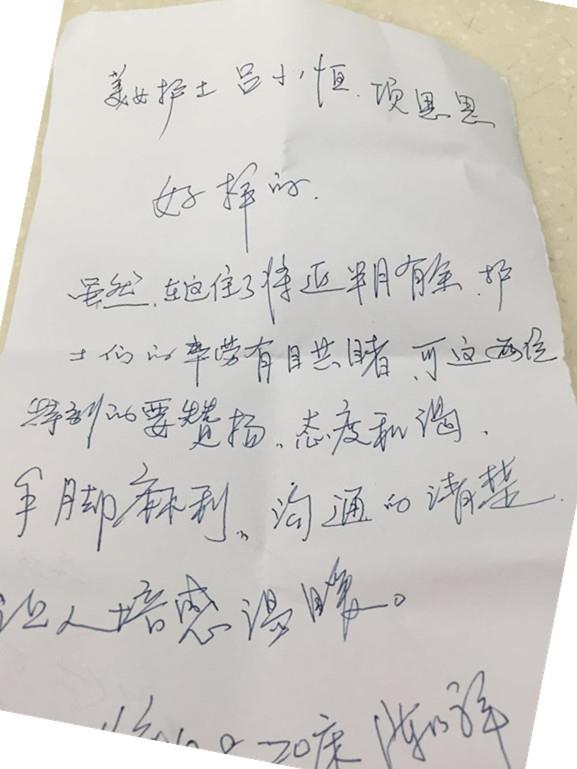 美女护士吕小恒、项思思
好样的.
虽然,在这住了将近半月有余,护
士们的辛劳有目共睹,可这两位
特别的要赞扬、态度和谒、
手脚麻利、沟通的清楚.
让人培感温暖。
20床